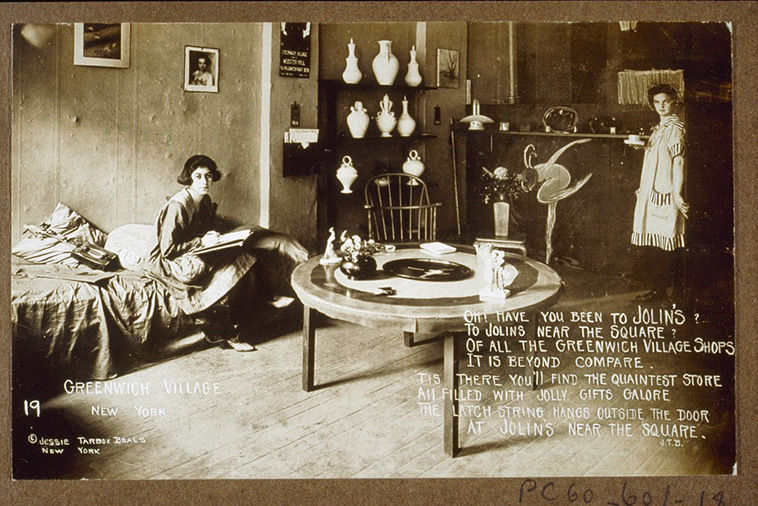 OH! HAVE YOU BEEN TO JOLIN'S?
TO JOLINS NEAR THE SQUARE?
OF ALL THE GREENWICH VILLAGE SHOPS
IT IS BEYOND COMPARE.
TIS THERE YOU'LL FIND THE QUAINTEST STORE
All FILLED WITH JOLLY GIFTS GALORE
THE LATCH-STRING HANGS OUTSIDE THE DOOR
AT JOLINS NEAR THE SQUARE.
J.T.B.
GREENWICH VILLAGE
NEW YORK
19
© JESSIE TARBOX BEALS
NEW YORK
PC60-601-19